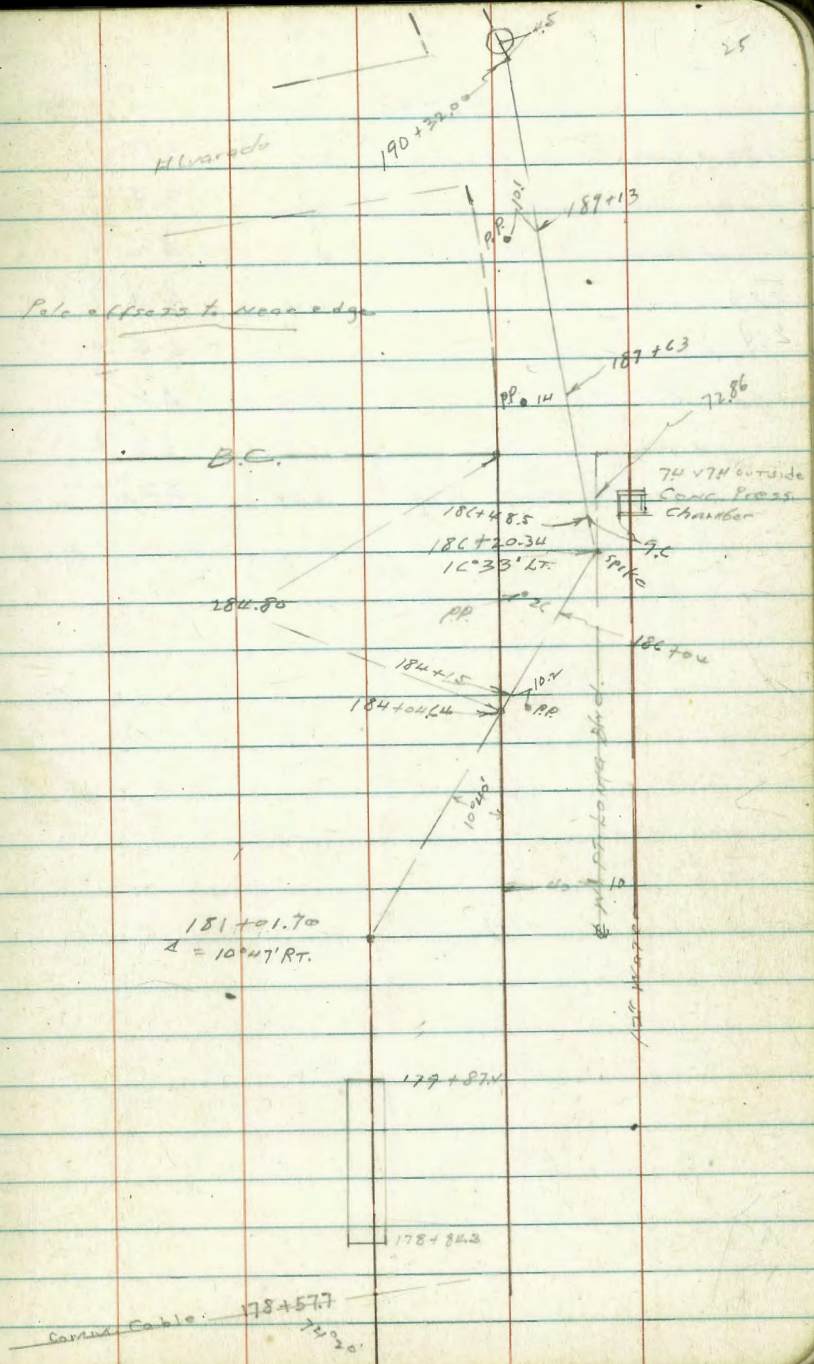 25
45
190+32.00
Alvarado
10.1
189+13
P.P.
Pole offsets to Near edge
187+63
P.P. 14
72.86
B.C.
74 x 74 outside
Conc. Press.
Chamber
186+48.5
9.6
186+20.34
16°33' LT.
Spike
284.80
P.P.
26
186+04
184+15
10.2
184+04.64
P.P.
10°40'
40
10
181+01.70
Δ = 10°47' RT.
12" Water
179+87.2
178+84.3
Comm. Cable 178+57.7
74°20'